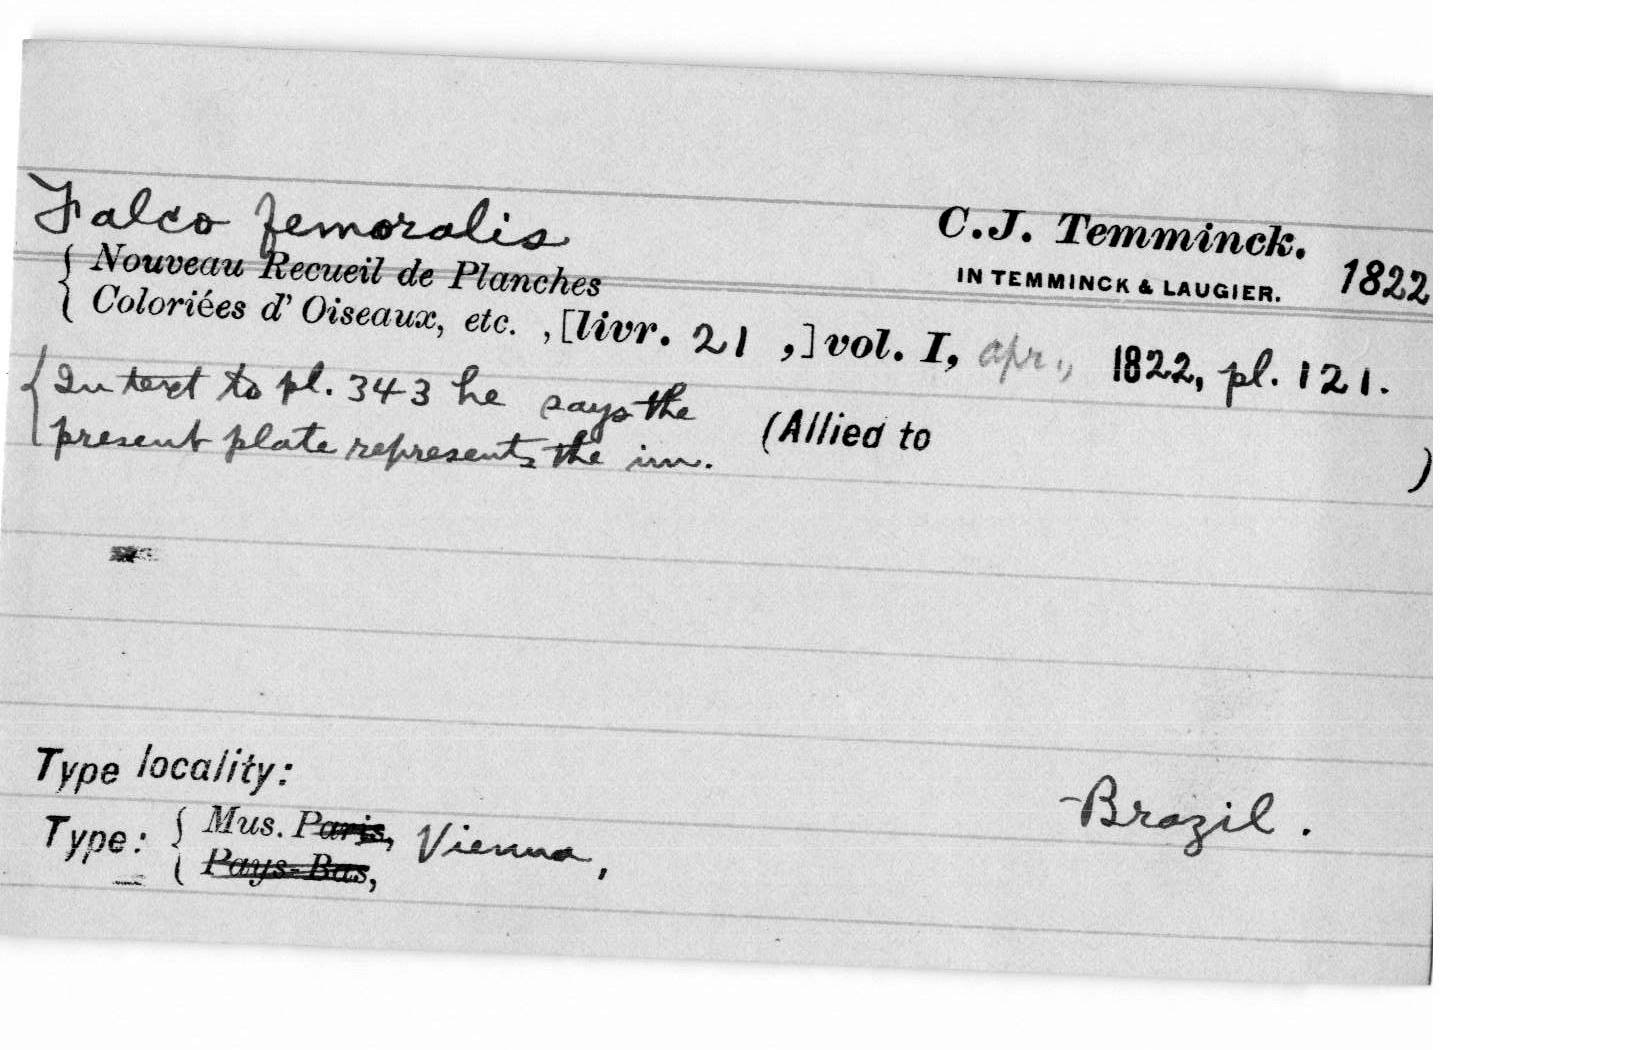 Falco femoralis C.J. Temminck.
IN TEMMINCK & LAUGIER. 1822
{ Nouveau Recueil de Planches
Coloriées d' Oiseaux, etc. , [livr. 21 ,] vol. I, apr., 1822, pl. 121.
{ In text to pl. 343 he says the
present plate represents the im. (Allied to )
Type locality: Brazil.
Type: { Mus. Paris, Vienna,
Pays-Bas,